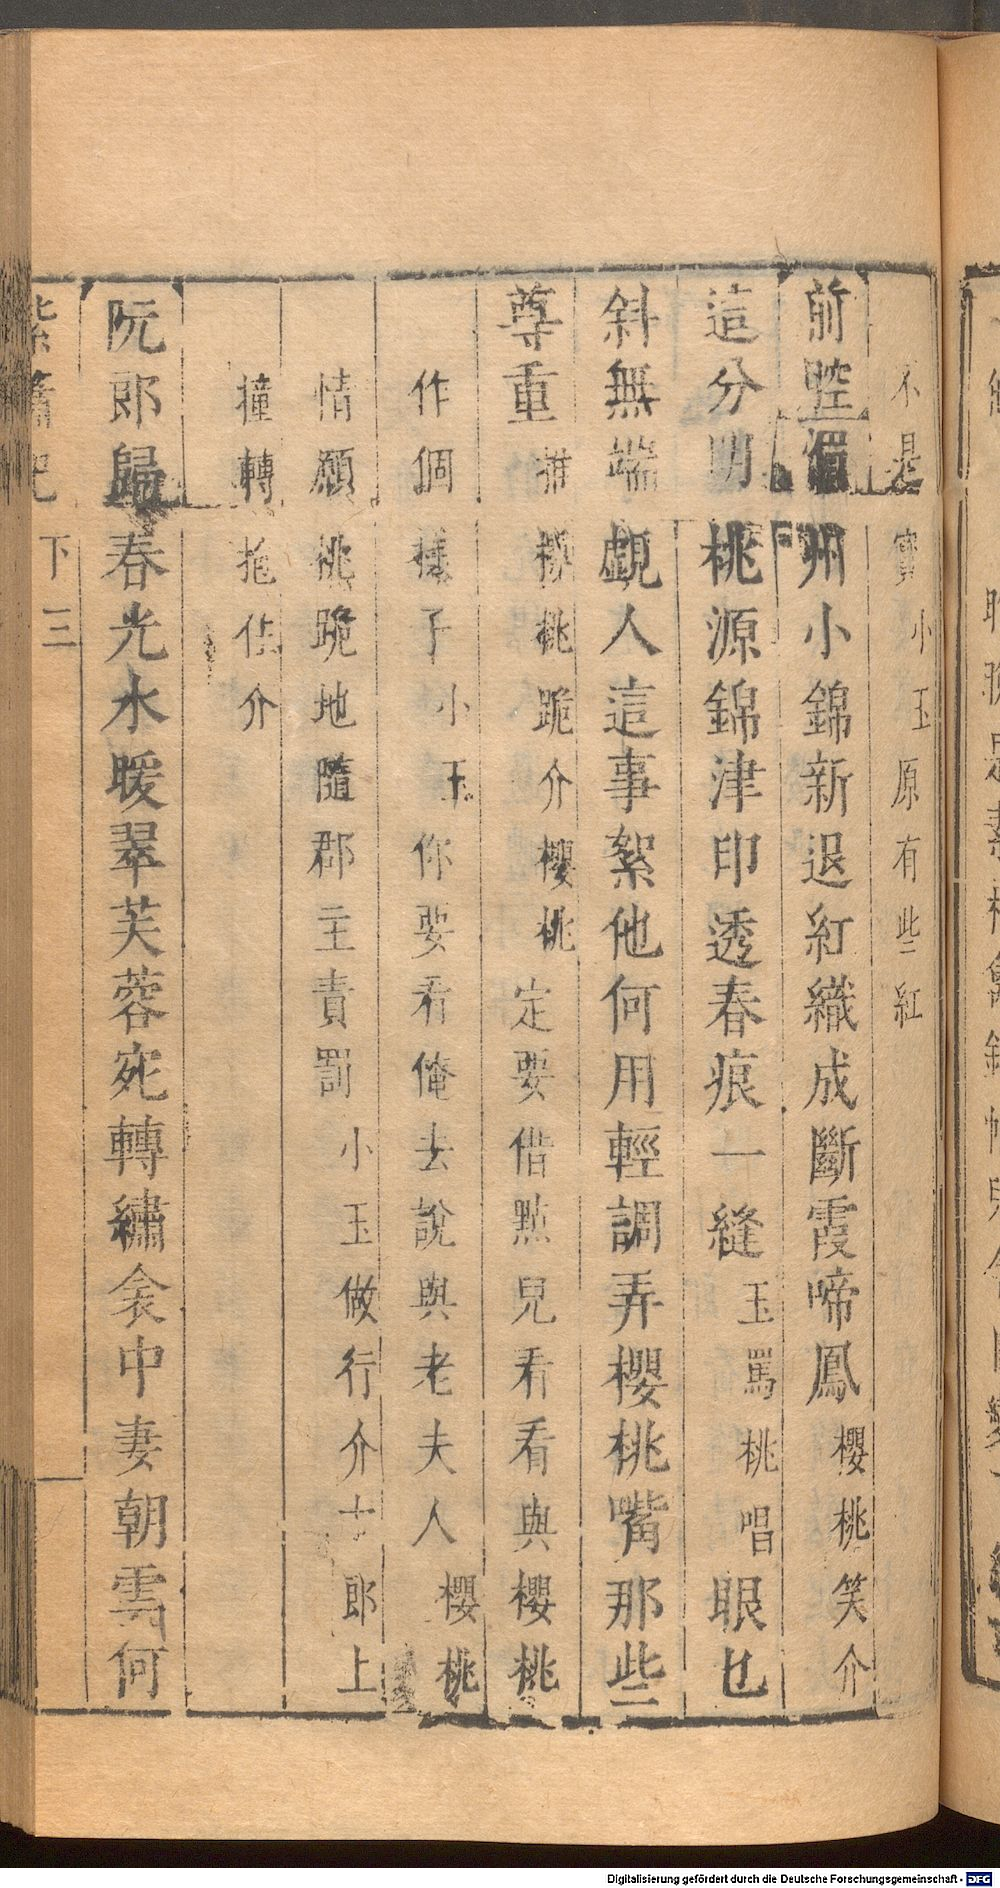 不是寶小玉原有些紅
前腔州小錦新退紅織成斷霞啼鳳櫻桃笑介
這分明桃源錦津印透春痕一縫玉罵桃唱眼乜
斜無端覷人這事絮他何用輕調弄櫻桃嘴那些
尊重推櫻桃跪介櫻桃定要借點兒看看與櫻桃
作個樣子小玉你要看俺去說與老夫人櫻桃
情願桃跪地隨郡主責罰小玉做行介十郎上
撞轉抱住介
阮郎歸春光水暖翠芙蓉宛轉繡衾中妻朝雲何
紫簫記下三
Digitalisierung gefördert durch die Deutsche Forschungsgemeinschaft - DFG